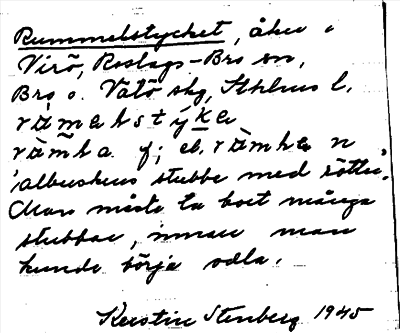 Rummelstycket, åker i
Virö, Roslags-Bro sn,
Bro o. Vätö skg, Sthlms l.
rä̀mɛlstýkɛ
rä̀mla f; el. rä̀mlɛ n
'albuskens stubbe med rötter'.
Man måste ta bort många
stubbar, innan man
kunde börja odla.
Kerstin Stenberg 1945